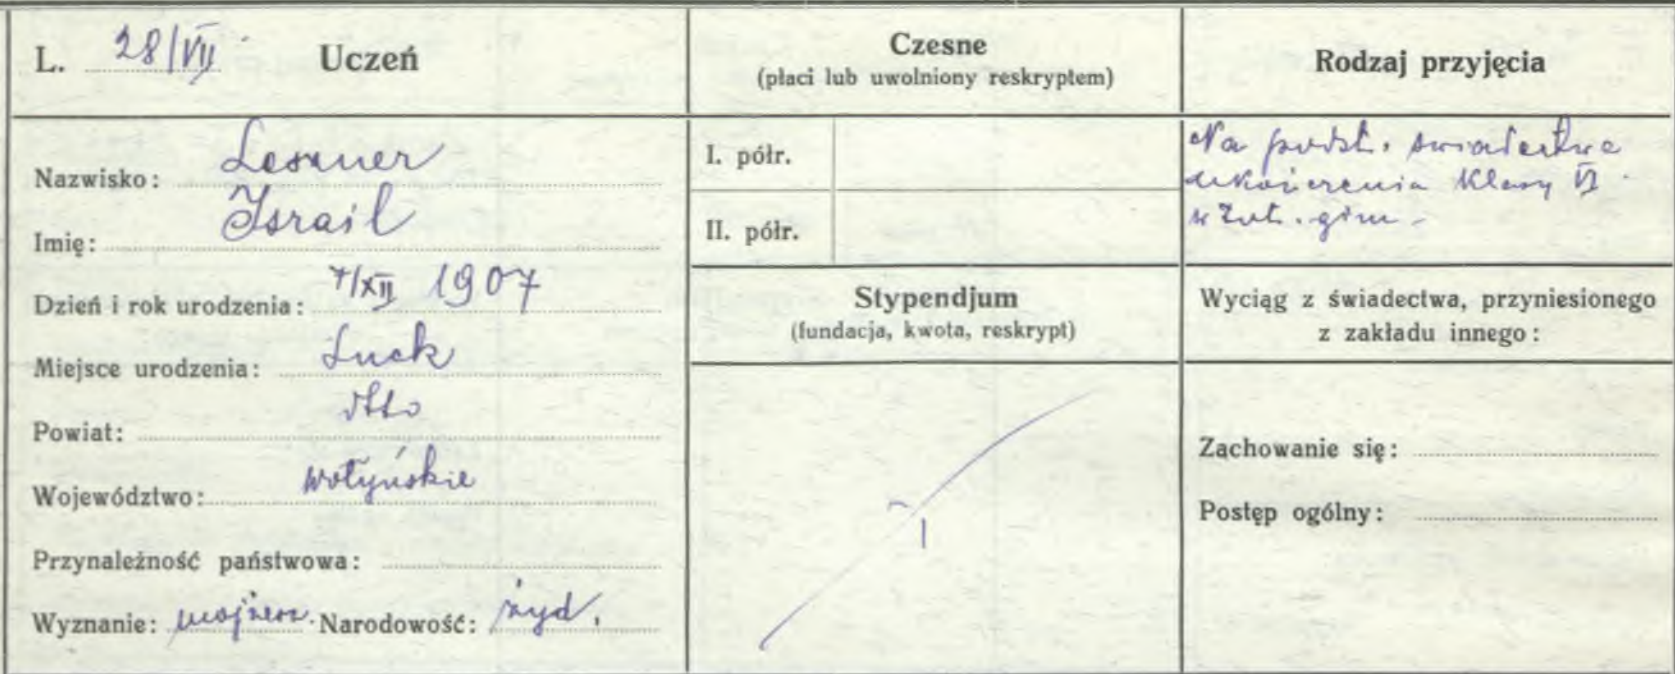 L. 28/VII Uczeń
Nazwisko: Leszner
Imię: Israil
Dzień i rok urodzenia: 7/XII 1907
Miejsce urodzenia: Łuck
Powiat:
Województwo: wołyńskie
Przynależność państwowa:
Wyznanie: mojżesz. Narodowość: żyd.
Czesne
(płaci lub uwolniony reskryptem)
I. półr.
II. półr.
Stypendjum
(fundacja, kwota, reskrypt)
Rodzaj przyjęcia
Na podst. świadectwa
ukończenia klasy VI
w gim.
Wyciąg z świadectwa, przyniesionego
z zakładu innego:
Zachowanie się:
Postęp ogólny: